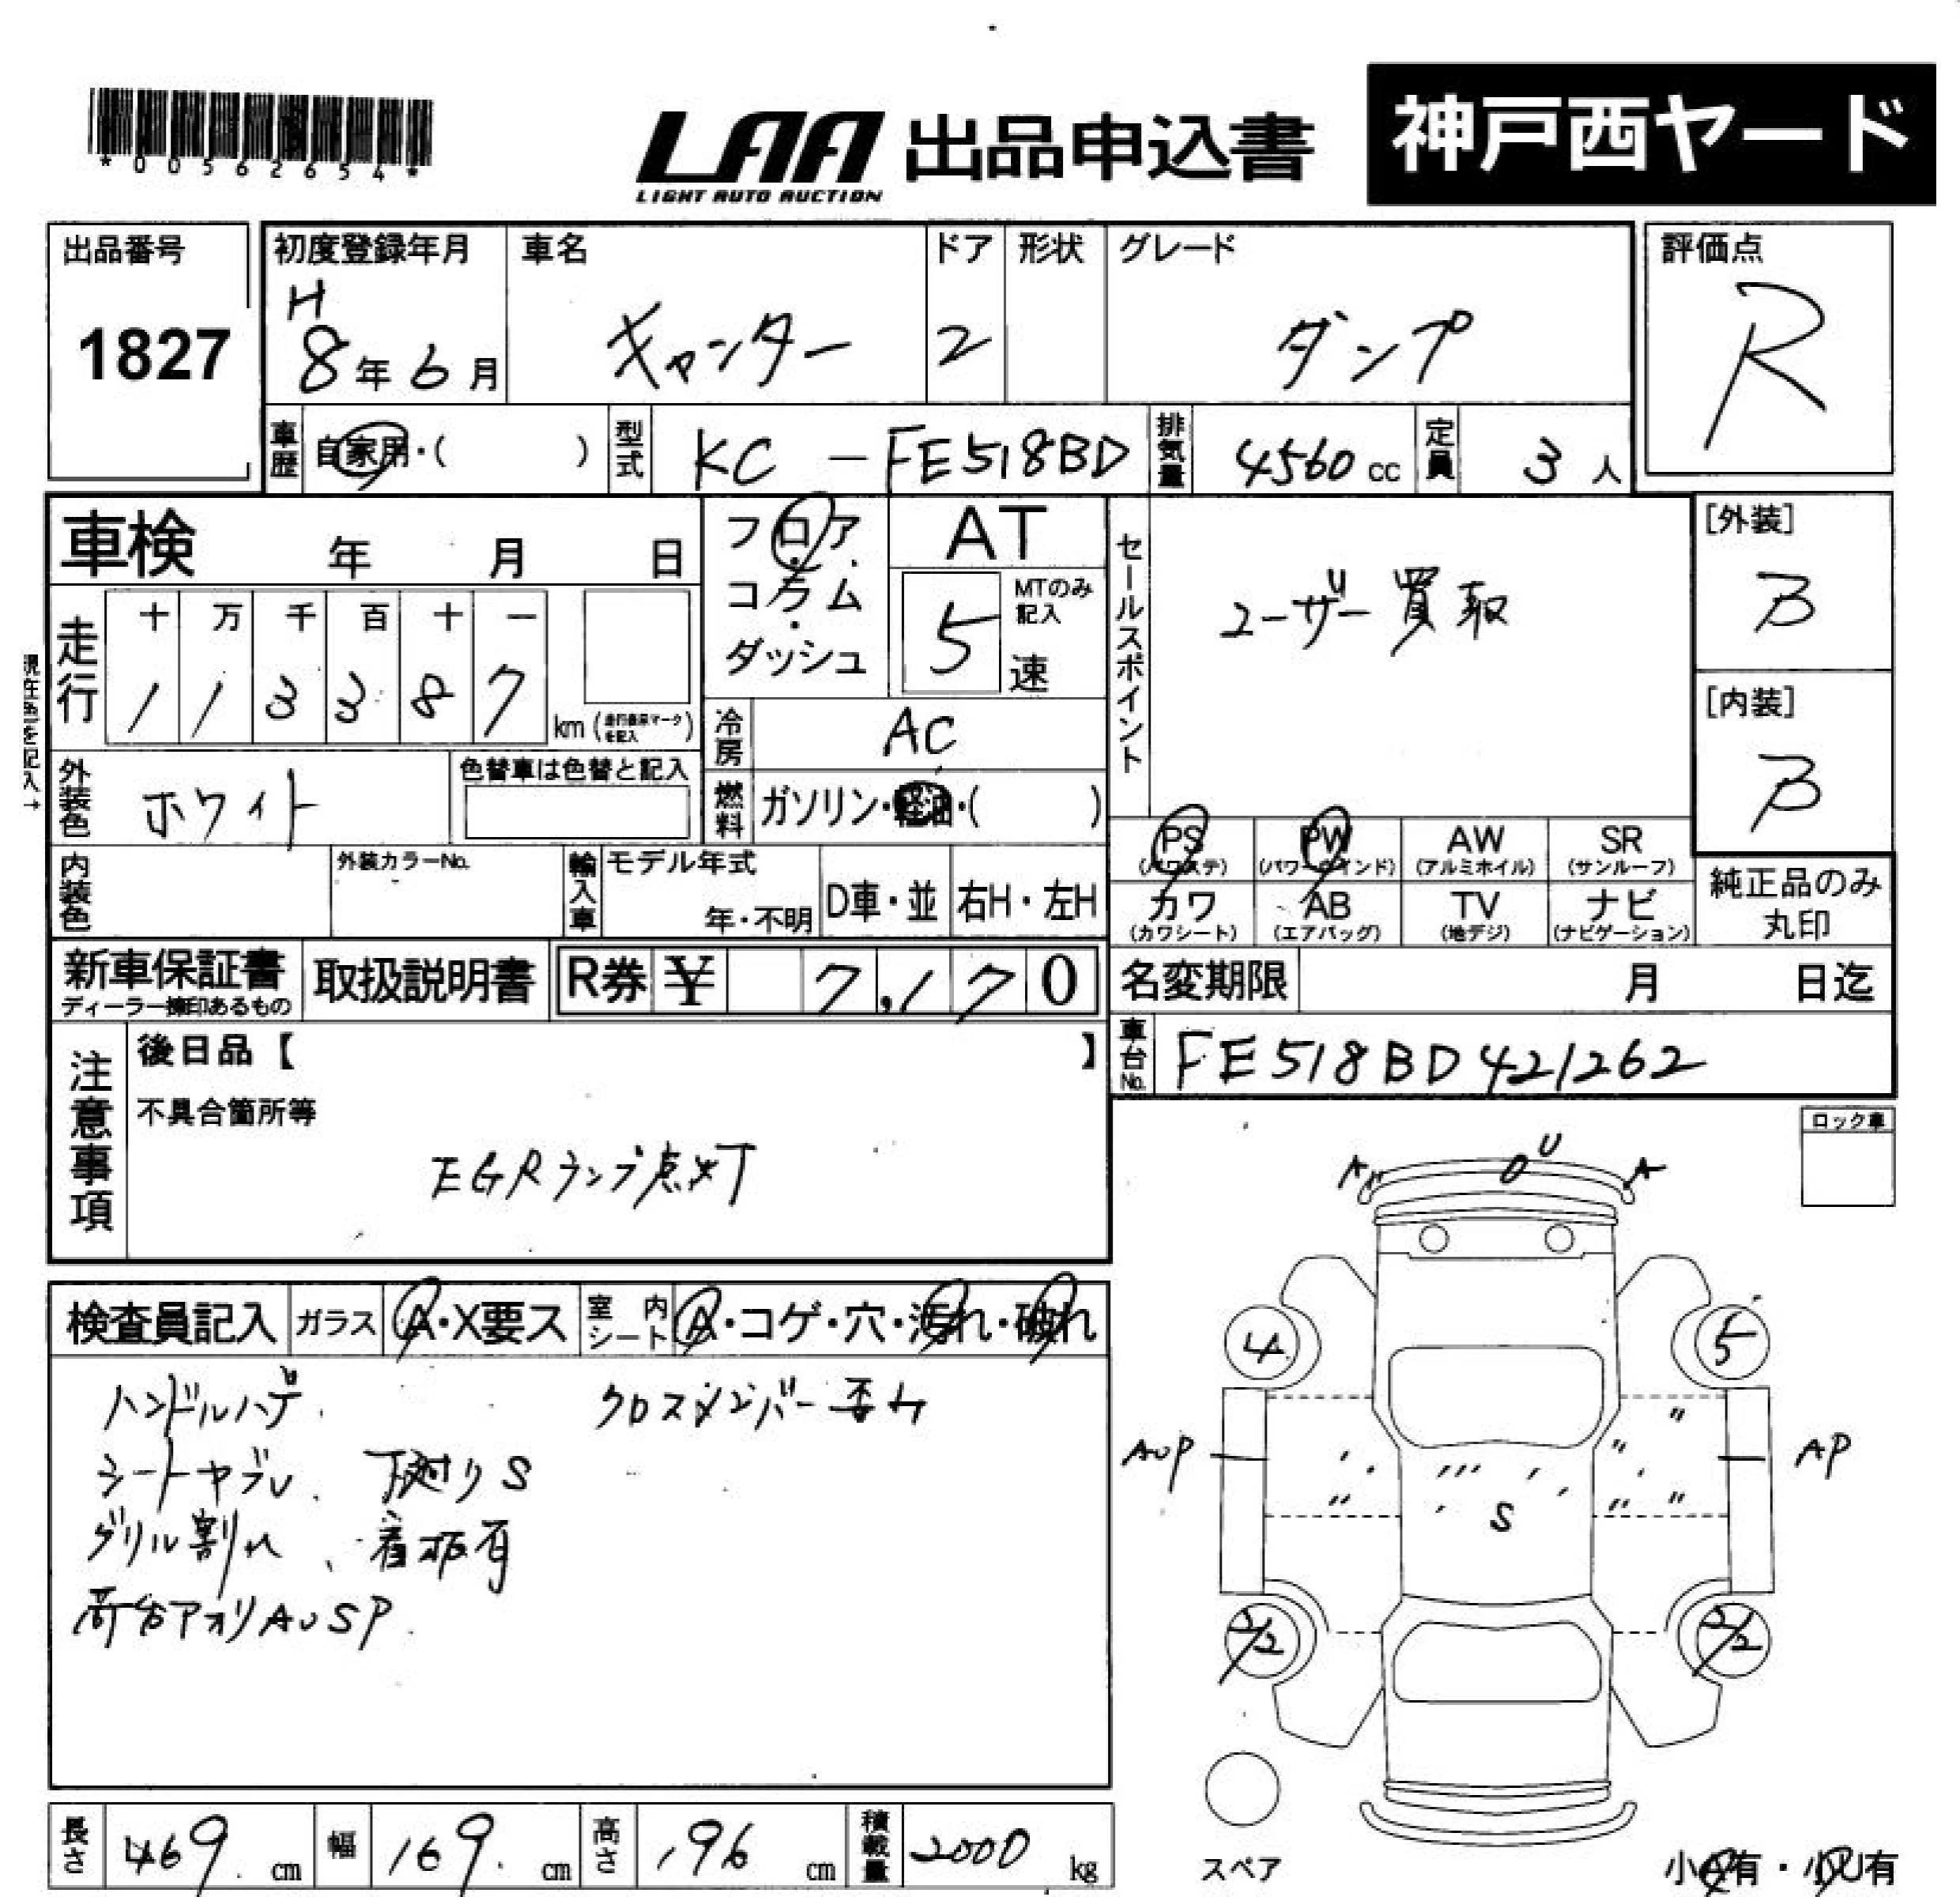 *00562654*
LAA 出品申込書 神戸西ヤード
LIGHT AUTO AUCTION
出品番号 初度登録年月 車名 ドア 形状 グレード 評価点
1827 H 8年6月 キャンター 2 ダンプ R
車歴 自家用・( ) 型式 KC-FE518BD 排気量 4560cc 定員 3人
車検 年 月 日
フロア・コラム・ダッシュ
AT
5速 MTのみ記入
セールスポイント
ユーザー買取
[外装] B
[内装] B
走行 十 万 千 百 十 一
1 1 3 3 8 7 km (走行表示マークを記入)
現在色を記入→
冷房 AC
外装色 ホワイト 色替車は色替と記入
燃料 ガソリン・軽油・( )
PS (パワステ) PW (パワーウインド) AW (アルミホイル) SR (サンルーフ)
カワ (カワシート) AB (エアバッグ) TV (地デジ) ナビ (ナビゲーション)
純正品のみ丸印
内装色 外装カラーNo. 輸入車 モデル年式 年・不明 D車・並 右H・左H
新車保証書 ディーラー捺印あるもの 取扱説明書 R券 ¥ 7,170
名変期限 月 日迄
車台No. FE518BD421262
注意事項
後日品【 】
不具合箇所等
EGRランプ点灯
ロック車
検査員記入 ガラス A・X要ス 室内シート A・コゲ・穴・汚れ・破れ
ハンドルハゲ. クロスメンバー歪み
シートヤブレ. 下廻りS
グリル割れ、看板有
荷台アオリAUSP.
A U A
4 5
AUP AP
S
2/2 2/2
スペア
小A有・小U有
長さ 469.cm 幅 169.cm 高さ 196cm 積載量 2000kg